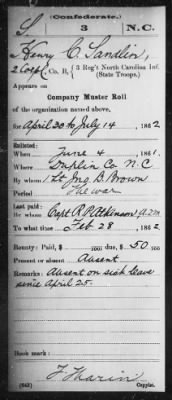 (Confederate.)
S 3 N.C.
Henry C. Sandlin,
2 Corpl, Co. B, 3 Reg't North Carolina Inf.
(State Troops.)
Appears on
Company Muster Roll
of the organization named above,
for April 30 to July 14, 1862
Enlisted:
When June 4, 1861.
Where Duplin Co N.C
By whom 1 Lt. Jno B. Brown
Period The war
Last paid:
By whom Capt R P Atkinson A.Q.M
To what time Feb 28, 1862
Bounty: Paid $ 100; due $ 50 100
Present or absent Absent
Remarks: Absent on sick leave
since April 25.
Book mark:
(642) Copyist.